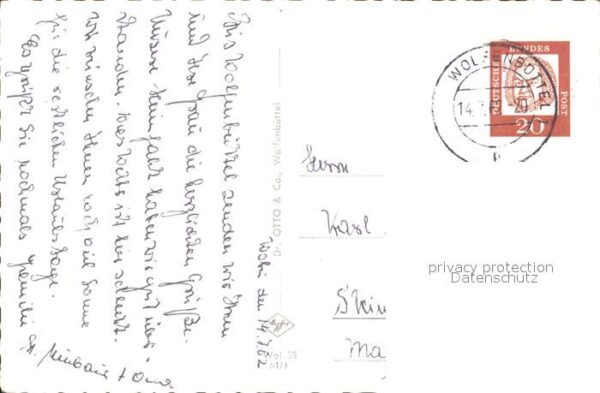 Wolf. den 14.7.62
Aus Wolfenbüttel senden wir Ihnen
und Ihrer Frau die herzlichsten Grüße.
Unsere Heimfahrt haben wir gut über-
standen. Das Wetter ist hier schlecht.
Wir wünschen Ihnen noch viel Sonne
für die restlichen Urlaubstage.
Es grüßt Sie nochmals
Herrn
Karl
Stein
Ma
Dr. OTTO & Co., Wolfenbüttel
Wol 55
61/3
WOLFENBÜTTEL
14.
20
DEUTSCHE
BUNDES
POST
20
privacy protection
Datenschutz